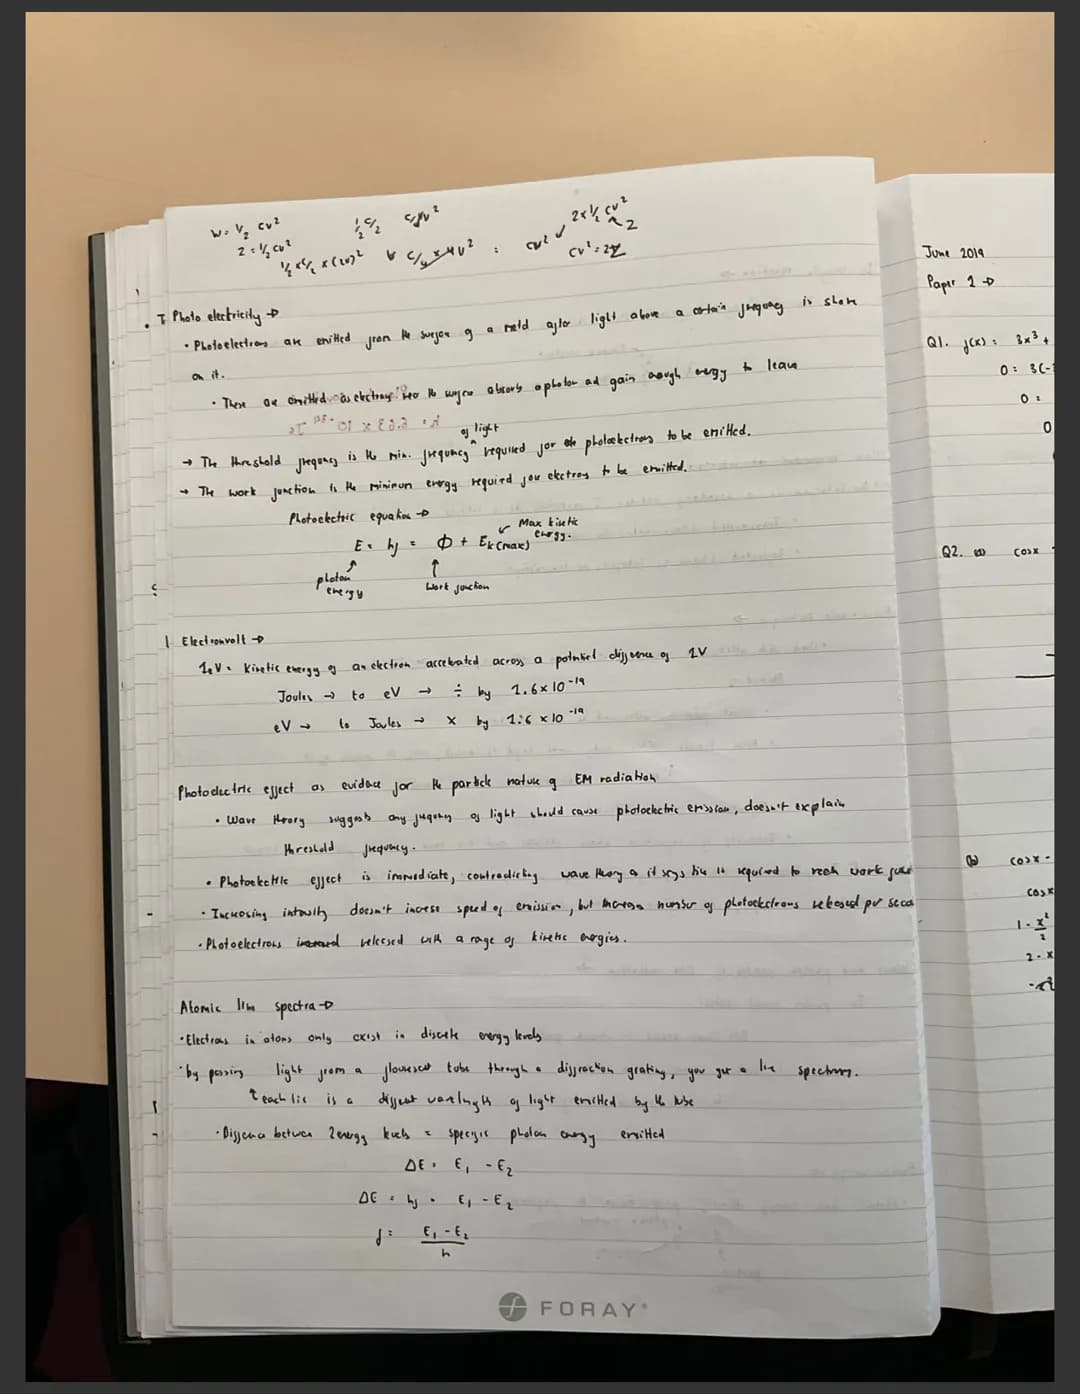 W = 1/2 CV²
1/2 C/2
2 = 1/2 CV²
1/2 × C/2 × (2V)²
C/4 × 4V² : CV²
2 × 1/2 CV²
2
CV² = 2
Photoelectricity →
• Photoelectrons are emitted from the surface of a metal after light above a certain frequency is shone
on it.
• These are emitted as electrons near the surface absorb a photon and gain enough energy to leave
h = 6.63 × 10⁻³⁴ Js
of light
→ The threshold frequency is the min. frequency required for photoelectrons to be emitted.
→ The work function is the minimum energy required for electrons to be emitted.
Photoelectric equation →
Max kinetic
energy.
E = hf = Φ + Ek(max)
photon
energy
Work function
Electronvolt →
1eV = Kinetic energy of an electron accelerated across a potential difference of 1V
Joules → to eV → ÷ by 1.6×10⁻¹⁹
eV → to Joules → × by 1.6×10⁻¹⁹
Photoelectric effect as evidence for the particle nature of EM radiation
• Wave theory suggests any frequency of light should cause photoelectric emission, doesn't explain
threshold frequency.
• Photoelectric effect is immediate, contradicting wave theory as it says time is required to reach work
• Increasing intensity doesn't increase speed of emission, but increases number of photoelectrons released per
• Photoelectrons released with a range of kinetic energies.
Atomic line spectra →
• Electrons in atoms only exist in discrete energy levels
• by passing light from a flourescent tube through a diffraction grating, you get a line spectrum.
↑ each line is a different wavelength of light emitted by the tube
• Difference between 2 energy levels = specific photon energy emitted
ΔE = E₁ - E₂
ΔE = hf = E₁ - E₂
f = E₁ - E₂ / h
FORAY
June 2019
Paper 1 →
Q1. f(x) = 3x³ +
0 = 3(-
0 =
0
Q2. (a) cosx
(b) cosx -
cosx
1 - x²/2
2 - x
-x²